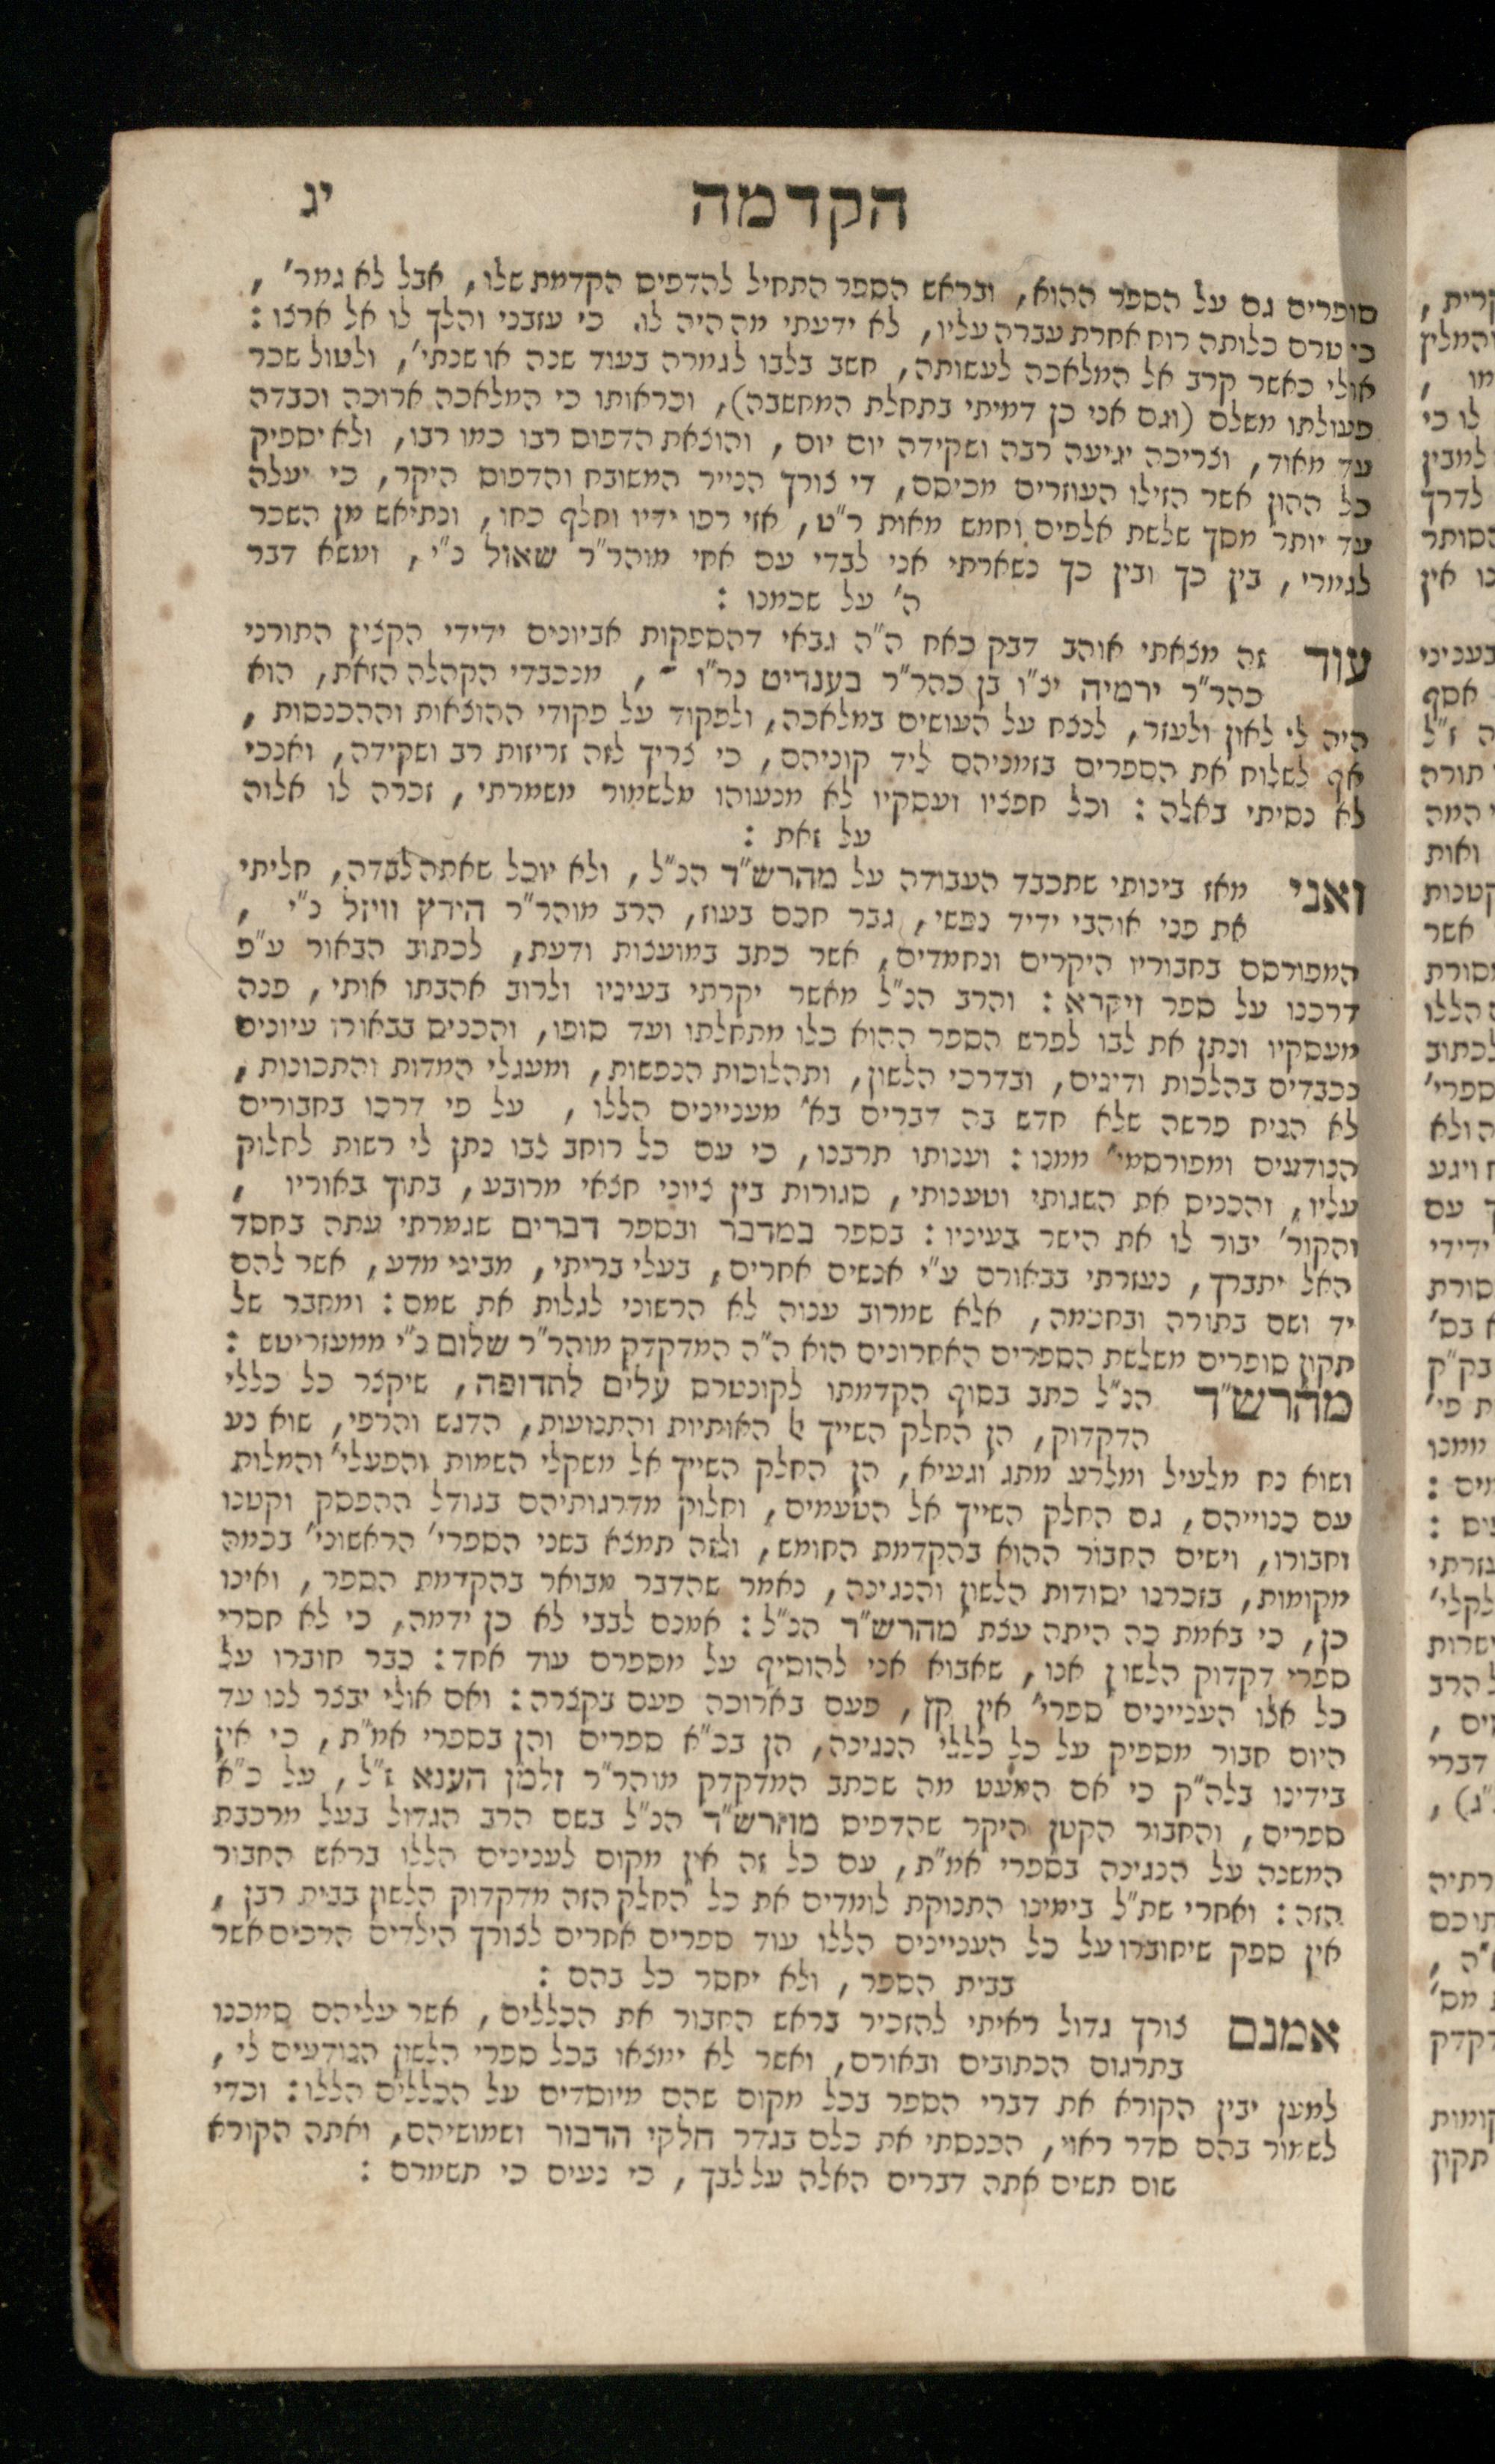 הקדמה
יג
סופרים גם על הספר ההוא, ובראש הספר התחיל להדפיס הקדמת שלו, אבל לא גמר׳,
כי טרם כלותה רוח אחרת עברה עליו, לא ידעתי מה היה לו. כי עזבני והלך לו אל ארצו:
אולי כאשר קרב אל המלאכה לעשותה, חשב בלבו לגמרה בעוד שנה או שנתי׳, ולטול שכר
פעולתו משלם (וגם אני כן דמיתי בתחלת המחשבה), וכראותו כי המלאכה ארוכה וכבדה
עד מאוד, וצריכה יגיעה רבה ושקידה יום יום, והוצאת הדפוס רבו כמו רבו, ולא יספיק
כל ההון אשר הזילו העוזרים מכיסם, די צורך הנייר המשובח והדפוס היקר, כי יעלה
עד יותר מסך שלשת אלפים וחמש מאות ר״ט, אזי רפו ידיו וחלף כחו, ונתיאש מן השכר
לגמרי, בין כך ובין כך נשארתי אני לבדי עם אחי מוהר״ר שאול נ״י, ומשא דבר
ה׳ על שכמנו:
עוד זה מצאתי אוהב דבק כאח ה״ה גבאי דהספקות אביונים ידידי הקצין התורני
כהר״ר ירמיה יצ״ו בן כהר״ר בענדיט נר״ו -, מנכבדי הקהלה הזאת, הוא
היה לי לאון ולעזר, לנצח על העושים במלאכה, ולפקוד על פקודי ההוצאות וההכנסות,
אף לשלוח את הספרים בזמניהם ליד קוניהם, כי צריך לזה זריזות רב ושקידה, ואנכי
לא נסיתי באלה: וכל חפציו ועסקיו לא מנעוהו מלשמור משמרתי, זכרה לו אלוה
על זאת:
ואני מאז בינותי שתכבד העבודה על מהרש״ד הנ״ל, ולא יוכל שאתה לבדה, חליתי
את פני אוהבי ידיד נפשי, גבר חכם בעוז, הרב מוהר״ר הירץ וויזל נ״י,
המפורסם בחבוריו היקרים ונחמדים, אשר כתב במועצות ודעת, לכתוב הבאור ע״פ
דרכנו על ספר ויקרא: והרב הנ״ל מאשר יקרתי בעיניו ולרוב אהבתו אותי, פנה
מעסקיו ונתן את לבו לפרש הספר ההוא כלו מתחלתו ועד סופו, והכניס בבאורו עיונים
נכבדים בהלכות ודינים, ובדרכי הלשון, ותהלוכות הנפשות, ומעגלי המדות והתכונות,
לא הניח פרשה שלא חדש בה דברים בא׳ מעניינים הללו, על פי דרכו בחבורים
הנודעים ומפורסמי׳ ממנו: וענותו תרבנו, כי עם כל רוחב לבו נתן לי רשות לחלוק
עליו, והכניס את השגותי וטענותי, סגורות בין ציוני חצאי מרובע, בתוך באוריו,
והקור׳ יבור לו את הישר בעיניו: בספר במדבר ובספר דברים שגמרתי עתה בחסד
האל יתברך, נעזרתי בבאורם ע״י אנשים אחרים, בעלי בריתי, מביני מדע, אשר להם
יד ושם בתורה ובחכמה, אלא שמרוב ענוה לא הרשוני לגלות את שמם: ומחבר של
תקון סופרים משלשת הספרים האחרונים הוא ה״ה המדקדק מוהר״ר שלום נ״י ממעזריטש:
מהרש״ד הנ״ל כתב בסוף הקדמתו לקונטרס עלים לתרופה, שיקצר כל כללי
הדקדוק, הן החלק השייך אל האותיות והתנועות, הדגש והרפי, שוא נע
ושוא נח מלעיל ומלרע מתג וגעיא, הן החלק השייך אל משקלי השמות והפעלי׳ והמלות
עם כנוייהם, גם החלק השייך אל הטעמים, וחלוק מדרגותיהם בגודל ההפסק וקטנו
וחבורו, וישים החבור ההוא בהקדמת החומש, ולזה תמצא בשני הספרי׳ הראשוני׳ בכמה
מקומות, בזכרנו יסודות הלשון והנגינה, נאמר שהדבר מבואר בהקדמת הספר, ואינו
כן, כי באמת כה היתה עצת מהרש״ד הנ״ל: אמנם לבבי לא כן ידמה, כי לא חסרי
ספרי דקדוק הלשון אנו, שאבוא אני להוסיף על מספרם עוד אחד: כבר חוברו על
כל אלו העניינים ספרי׳ אין קץ, פעם בארוכה פעם בקצרה: ואם אולי יבצר לנו עד
היום חבור מספיק על כל כללי הנגינה, הן בכ״א ספרים והן בספרי אמ״ת, כי אין
בידינו בלה״ק כי אם המעט מה שכתב המדקדק מוהר״ר זלמן הענא ז״ל, על כ״א
ספרים, והחבור הקטן היקר שהדפיס מוהרש״ד הנ״ל בשם הרב הגדול בעל מרכבת
המשנה על הנגינה בספרי אמ״ת, עם כל זה אין מקום לענינים הללו בראש החבור
הזה: ואחרי שת״ל בימינו התנוקת לומדים את כל החלק הזה מדקדוק הלשון בבית רבן,
אין ספק שיחוברו על כל העניינים הללו עוד ספרים אחרים לצורך הילדים הרכים אשר
בבית הספר, ולא יחסר כל בהם:
אמנם צורך גדול ראיתי להזכיר בראש החבור את הכללים, אשר עליהם סמכנו
בתרגום הכתובים ובאורם, ואשר לא ימצאו בכל ספרי הלשון הנודעים לי,
למען יבין הקורא את דברי הספר בכל מקום שהם מיוסדים על הכללים הללו: וכדי
לשמור בהם סדר ראוי, הכנסתי את כלם בגדר חלקי הדבור ושמושיהם, ואתה הקורא
שום תשים אתה דברים האלה על לבך, כי נעים כי תשמרם: